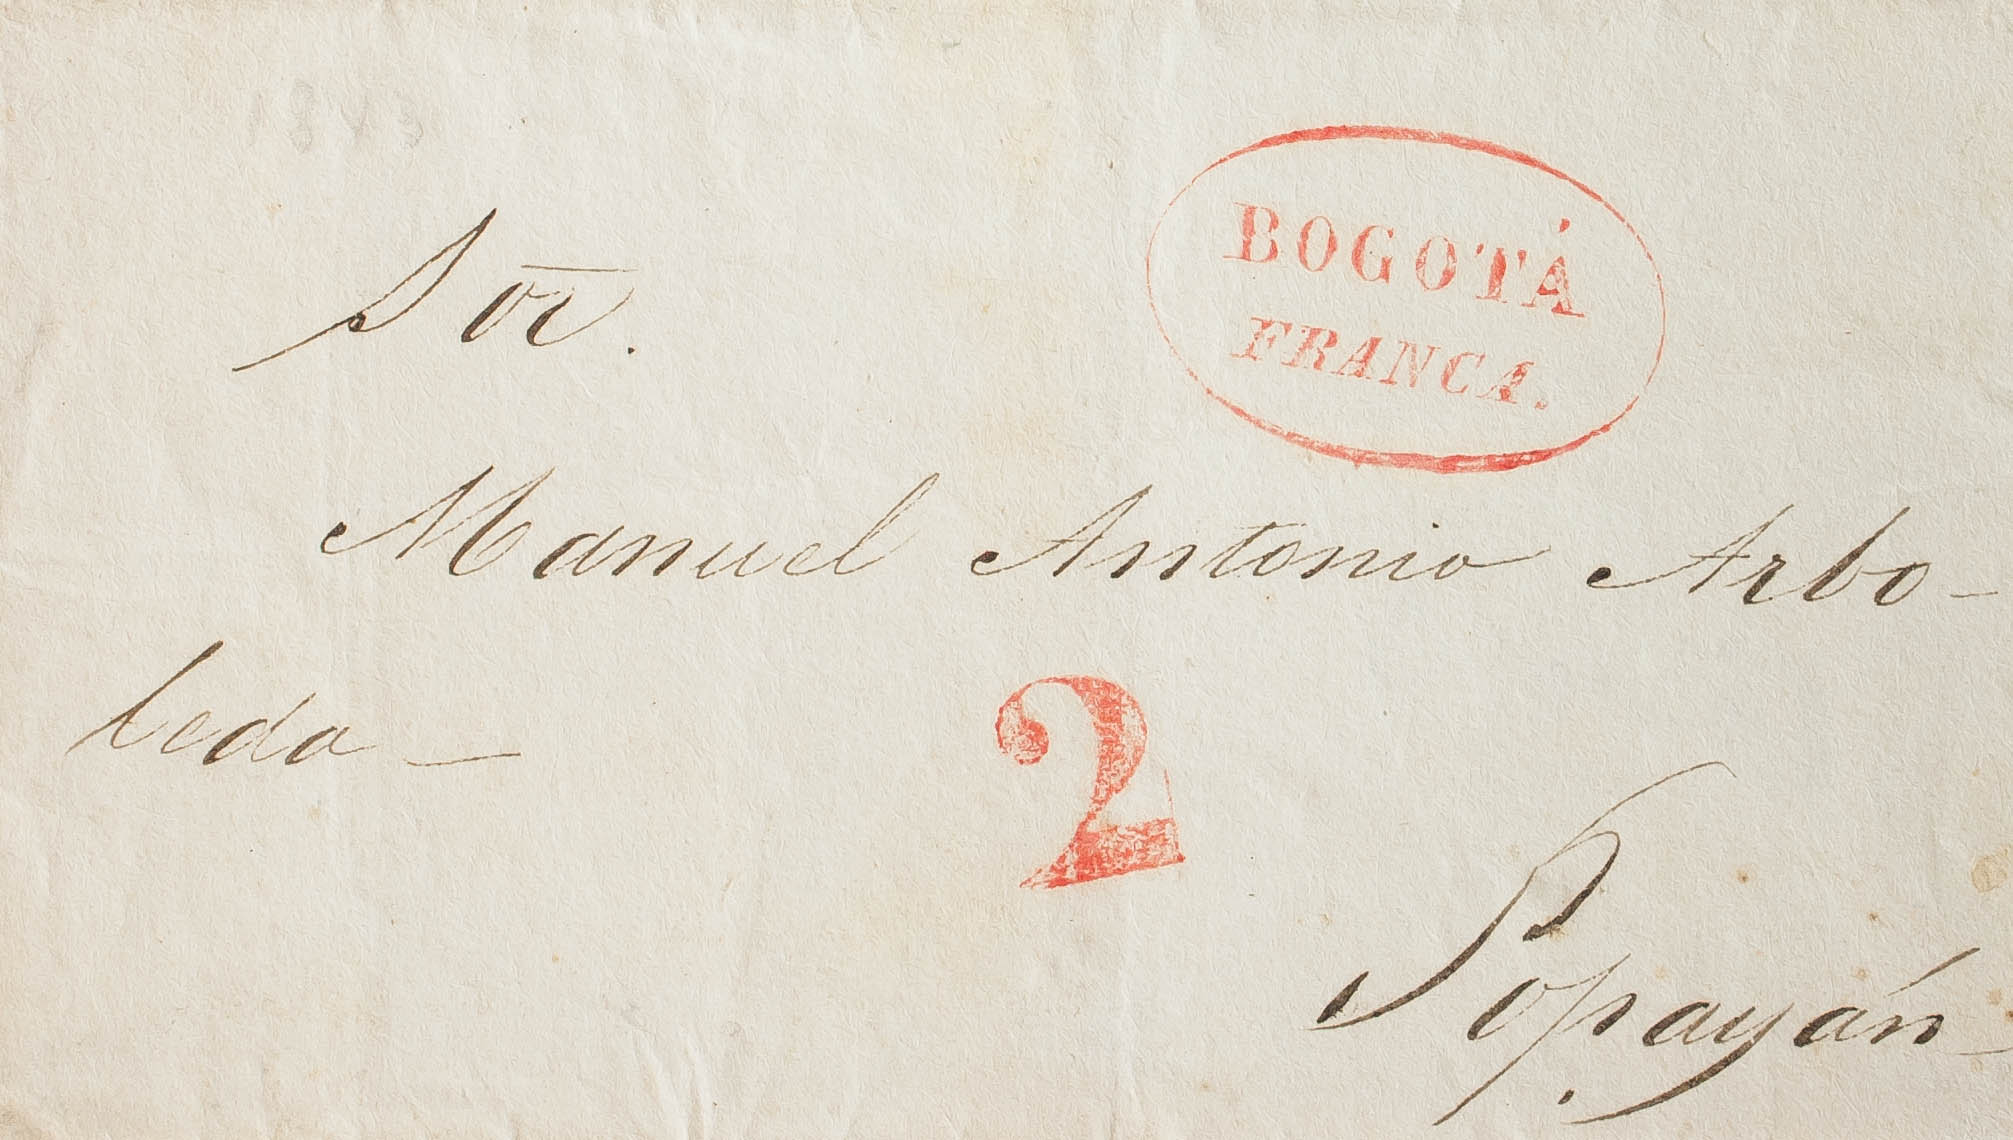 1843
BOGOTÁ
FRANCA.
Sor.
Manuel Antonio Arbo-
leda-
2
Popayán